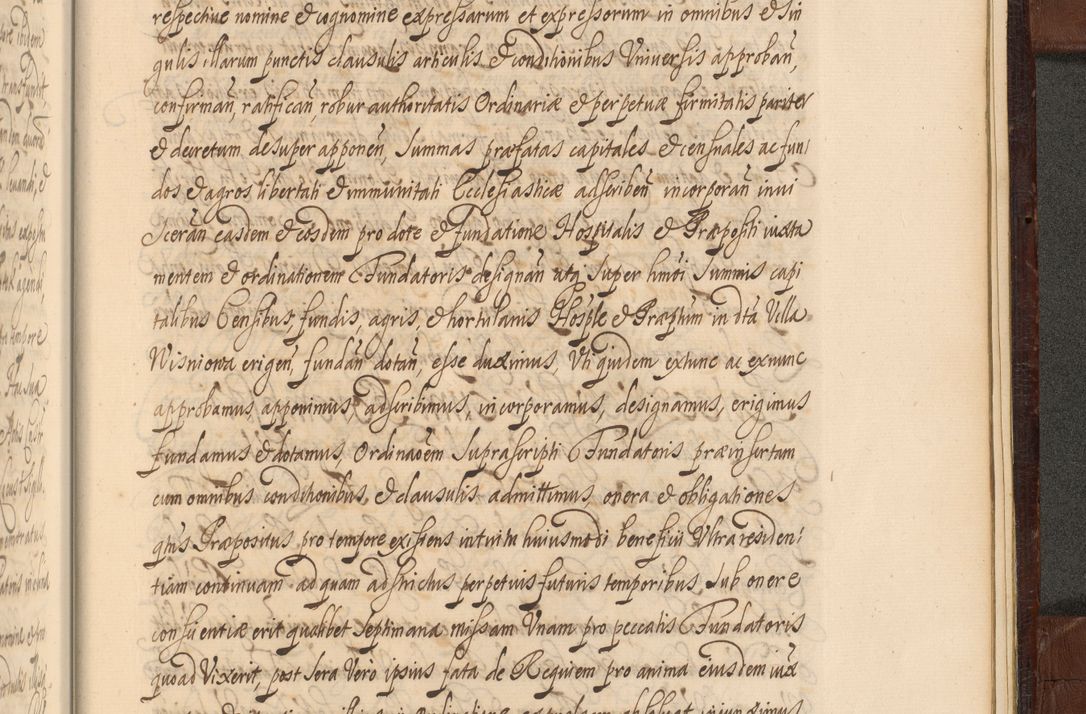 respective nomine et cognomine expressarum et expressorum in omnibus et sin
gulis illarum punctis clausulis articulis et conditionibus Universis approban,
confirman, ratifican, robur authoritatis Ordinariæ et perpetuæ firmitatis pariter
et decretum desuper apponen, Summas præfatas capitales et censuales ac fun
dos et agros libertati et immunitati Ecclesiasticæ adscriben incorporan invi
sceran easdem et eosdem pro dote et fundatione Hospitalis et Præpositi iuxta
mentem et ordinationem Fundatoris designan atq super hmoi Summis capi
talibus Censibus, fundis, agris, et hortulanis Hosple et Præptum in dta Villa
Wisniowa erigen, fundan dotan, esse duximus, Uti quidem extunc ac exnunc
approbamus, apponimus, adscribimus, incorporamus, designamus, erigimus
fundamus et dotamus Ordinaōem Suprascripti Fundatoris præinsertam
cum omnibus conditionibus, et clausulis admittimus onera et obligationes
qtus Præpositus pro tempore existens intuitu huiusmodi beneficii Ultra residen
tiam continuam ad quam adstrictus perpetuis futuris temporibus, sub onere
conscientiæ erit qualibet Septimana missam Unam pro peccatis Fundatoris
quoad Vixerit, post sera Vero ipsius fata de Requiem pro anima eiusdem iux